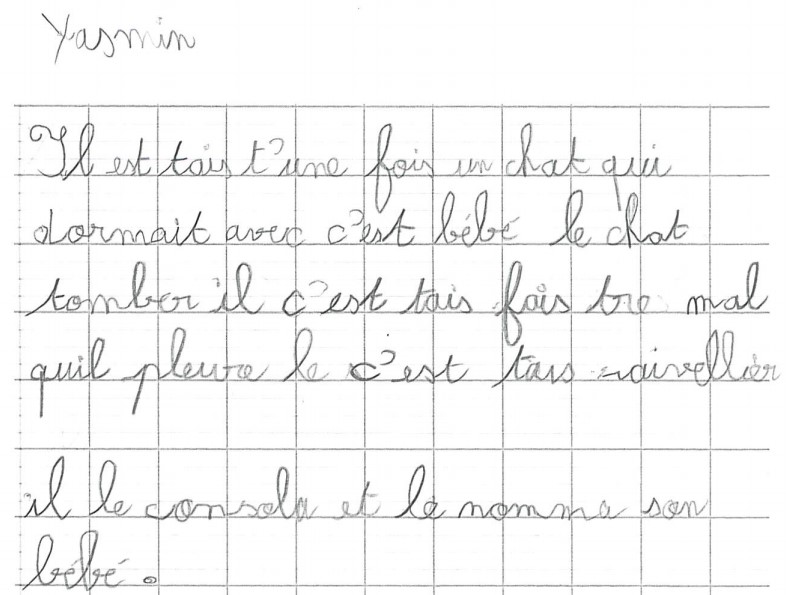 Yasmin
Il est tais t'une fois un chat qui
dormait avec c'est bébé le chat
tomber il c'est tais fais tre mal
quil pleure le c'est tais raivellièr
il le consola et le nomma son
bébé.